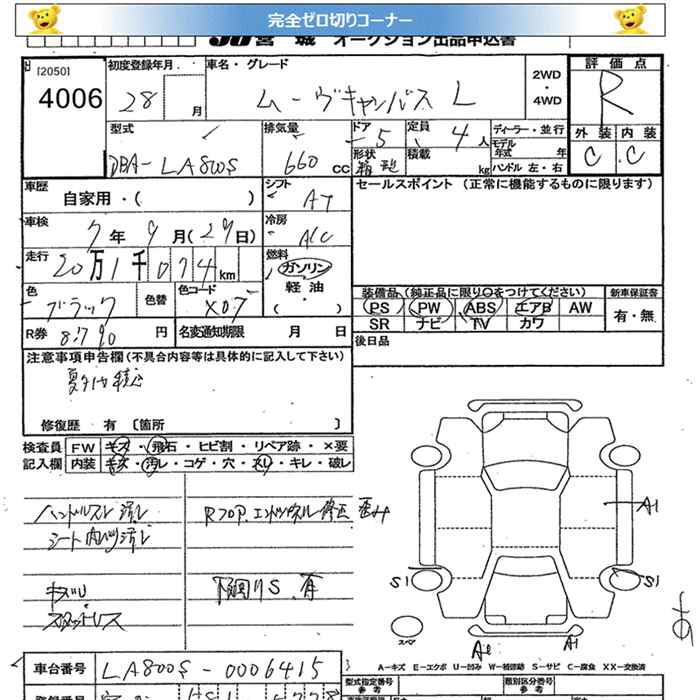 完全ゼロ切りコーナー
宮城 オークション出品申込書
[2050]
4006
初度登録年月
28 月
車名・グレード
ムーヴキャンバス L
2WD
・
4WD
評価点
R
外装 内装
C C
型式
DBA-LA800S
排気量
660 cc
ドア
5
定員
4 人
形状
箱型
積載
kg
ディーラー・並行
モデル年式 年
ハンドル 左・右
車歴
自家用・( )
シフト
AT
セールスポイント (正常に機能するものに限ります)
車検
7年 9月(29日)
冷房
A/C
走行
20万1千074km
燃料
ガソリン
・
軽油
・
( )
色
ブラック
色替
色コード
X07
装備品(純正品に限り○をつけてください)
PS PW ABS エアB AW
SR ナビ TV カワ
新車保証書
有・無
R券 8,790 円
名変通知期限 月 日
後日品
注意事項申告欄(不具合内容等は具体的に記入して下さい)
夏タイヤ積込
修復歴 有 〔箇所 〕
検査員記入欄
FW キズ・飛石・ヒビ割・リペア跡・×要
内装 キズ・汚レ・コゲ・穴・スレ・キレ・破レ
ハンドルスレ 汚レ
シート 内ハリ汚レ
キズU
スタットレス
Rフロア、エンドパネル修正 歪み
下廻りS 有
A1
S1
S1
スペア
A2
A1
A-キズ E-エクボ U-凹み W-補修跡 S-サビ C-腐食 XX-交換済
車台番号
LA800S-0006415
型式指定番号
参考
類別区分番号
参考
登録番号